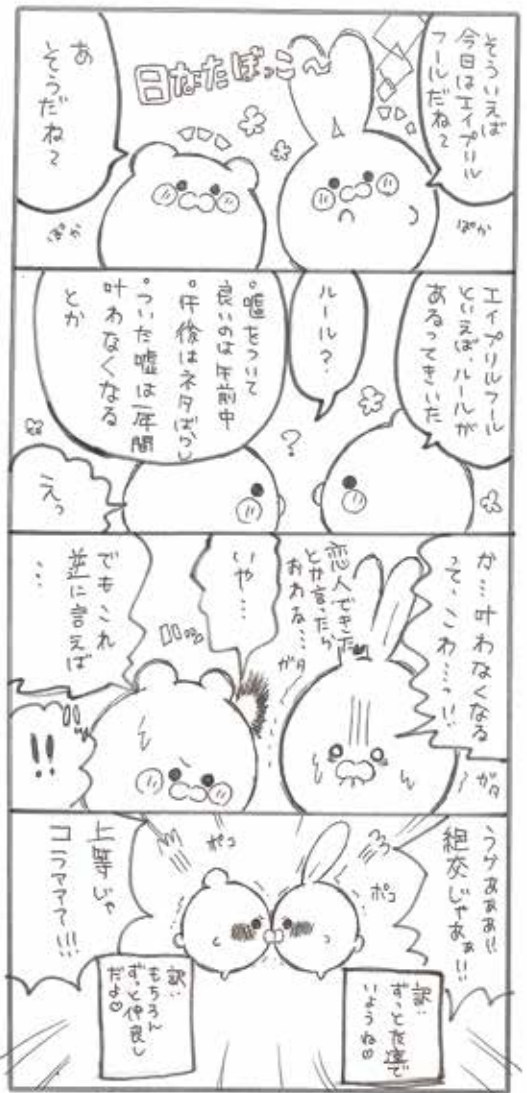 そういえば
今日はエイプリル
フールだね〜
日なたぼっこ〜
あ
そうだね〜
ぽか
ぽか
エイプリルフール
といえば、ルールが
あるってきいた
ルール?
?
•嘘をついて
良いのは午前中
•午後はネタばらし
•ついた嘘は一年間
叶わなくなる
とか
えっ
か…叶わなくなる
って、こわ…っ!!
ガタ
ガタ
恋人できた
とか言ったら
おわる…
いや…
でもこれ
逆に言えば
…
!!
うがぁぁぁ!!
絶交じゃあぁ!!
ポコ
ポコ
上等じゃ
コラァァァ!!!
訳:
ずっと友達で
いようね♡
訳:
もちろん
ずっと仲良し
だよ♡